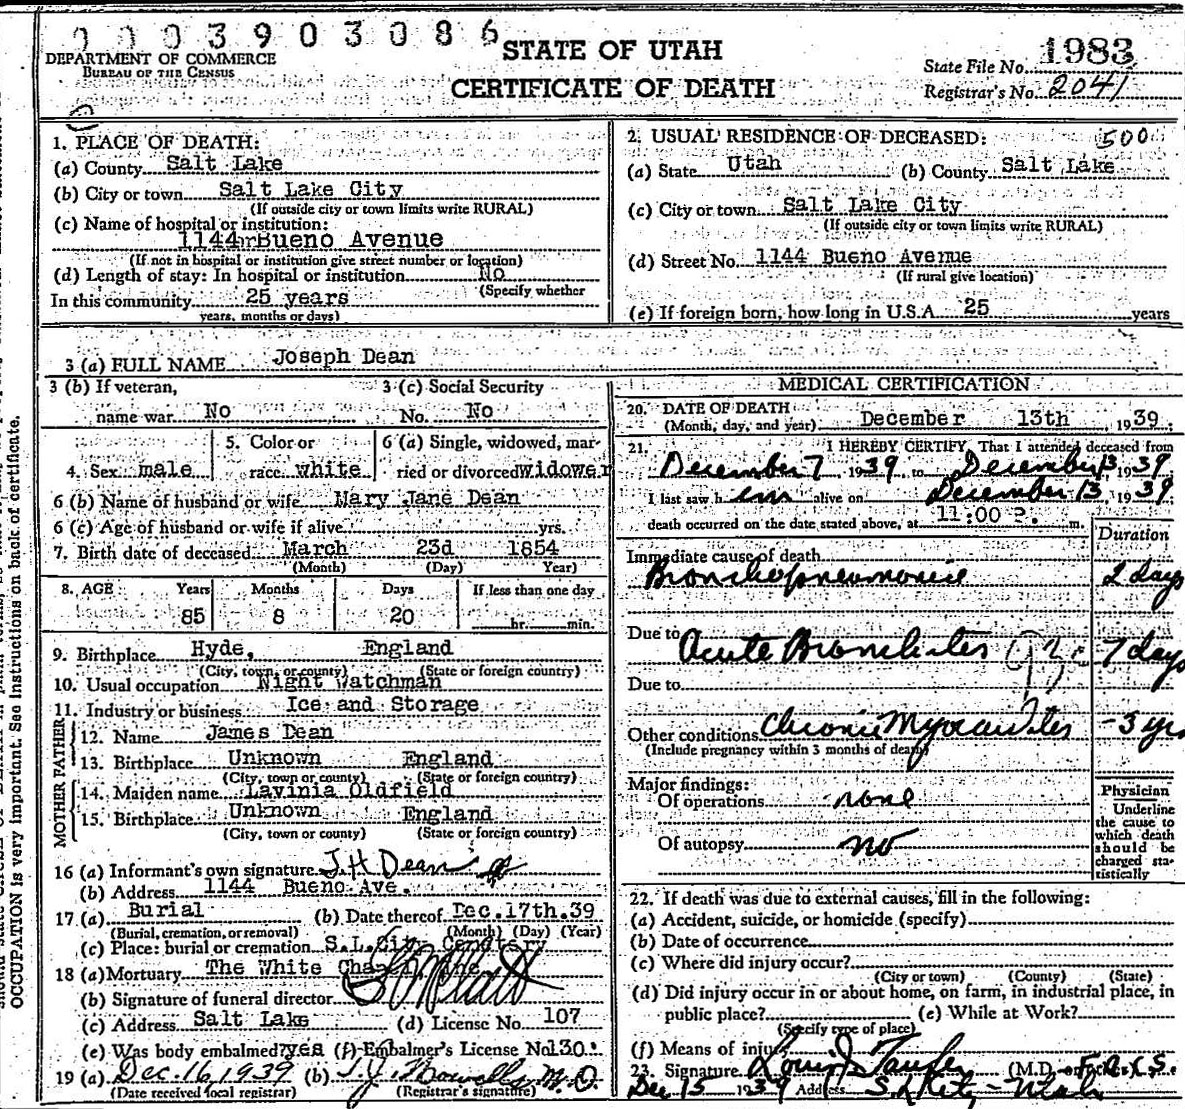 0003903086
DEPARTMENT OF COMMERCE
BUREAU OF THE CENSUS
STATE OF UTAH
CERTIFICATE OF DEATH
State File No. 1983
Registrar's No. 2041
1. PLACE OF DEATH:
(a) County Salt Lake
(b) City or town Salt Lake City
(If outside city or town limits write RURAL)
(c) Name of hospital or institution:
1144 Bueno Avenue
(If not in hospital or institution give street number or location)
(d) Length of stay: In hospital or institution No
(Specify whether
In this community 25 years
years, months or days)
2. USUAL RESIDENCE OF DECEASED: 500
(a) State Utah (b) County Salt Lake
(c) City or town Salt Lake City
(If outside city or town limits write RURAL)
(d) Street No. 1144 Bueno Avenue
(If rural give location)
(e) If foreign born, how long in U.S.A. 25 years
3 (a) FULL NAME Joseph Dean
3 (b) If veteran,
name war No
3 (c) Social Security
No. No
4. Sex male
5. Color or
race white
6 (a) Single, widowed, mar-
ried or divorced widower
6 (b) Name of husband or wife Mary Jane Dean
6 (c) Age of husband or wife if alive yrs.
7. Birth date of deceased March 23d 1854
(Month) (Day) Year)
8. AGE Years Months Days If less than one day
85 8 20 hr. min.
9. Birthplace Hyde, England
(City, town, or county) (State or foreign country)
10. Usual occupation Night Watchman
11. Industry or business Ice and Storage
FATHER
12. Name James Dean
13. Birthplace Unknown England
(City, town or county) (State or foreign country)
MOTHER
14. Maiden name Lavinia Oldfield
15. Birthplace Unknown England
(City, town or county) (State or foreign country)
16 (a) Informant's own signature J.H. Dean
(b) Address 1144 Bueno Ave.
17 (a) Burial (b) Date thereof Dec. 17th. 39
(Burial, cremation, or removal) (Month) (Day) (Year)
(c) Place: burial or cremation S.L. City Cemetery
18 (a) Mortuary The White Chapel Inc
(b) Signature of funeral director
(c) Address Salt Lake (d) License No. 107
(e) Was body embalmed? yes (f) Embalmer's License No 130
19 (a) Dec. 16, 1939 (b) M.D.
(Date received local registrar) (Registrar's signature)
MEDICAL CERTIFICATION
20. DATE OF DEATH
(Month, day, and year) December 13th 1939
21. I HEREBY CERTIFY, That I attended deceased from
December 7 1939 to December 13 1939
I last saw h im alive on December 13, 1939
death occurred on the date stated above, at 11:00 m.
Duration
Immediate cause of death
Bronchopneumonia 2 days
Due to Acute Bronchitis 7 days
Due to
Other conditions Chronic Myocarditis - 3 yrs
(Include pregnancy within 3 months of death)
Major findings:
Of operations none
Of autopsy no
Physician
Underline
the cause to
which death
should be
charged sta-
tistically
22. If death was due to external causes, fill in the following:
(a) Accident, suicide, or homicide (specify)
(b) Date of occurrence
(c) Where did injury occur?
(City or town) (County) (State)
(d) Did injury occur in or about home, on farm, in industrial place, in
public place? (e) While at Work?
(Specify type of place)
(f) Means of injury
23. Signature Louis J Taufer (M.D.
Dec 15 1939 Address S L City - Utah
OCCUPATION is very important. See instructions on back of certificate.